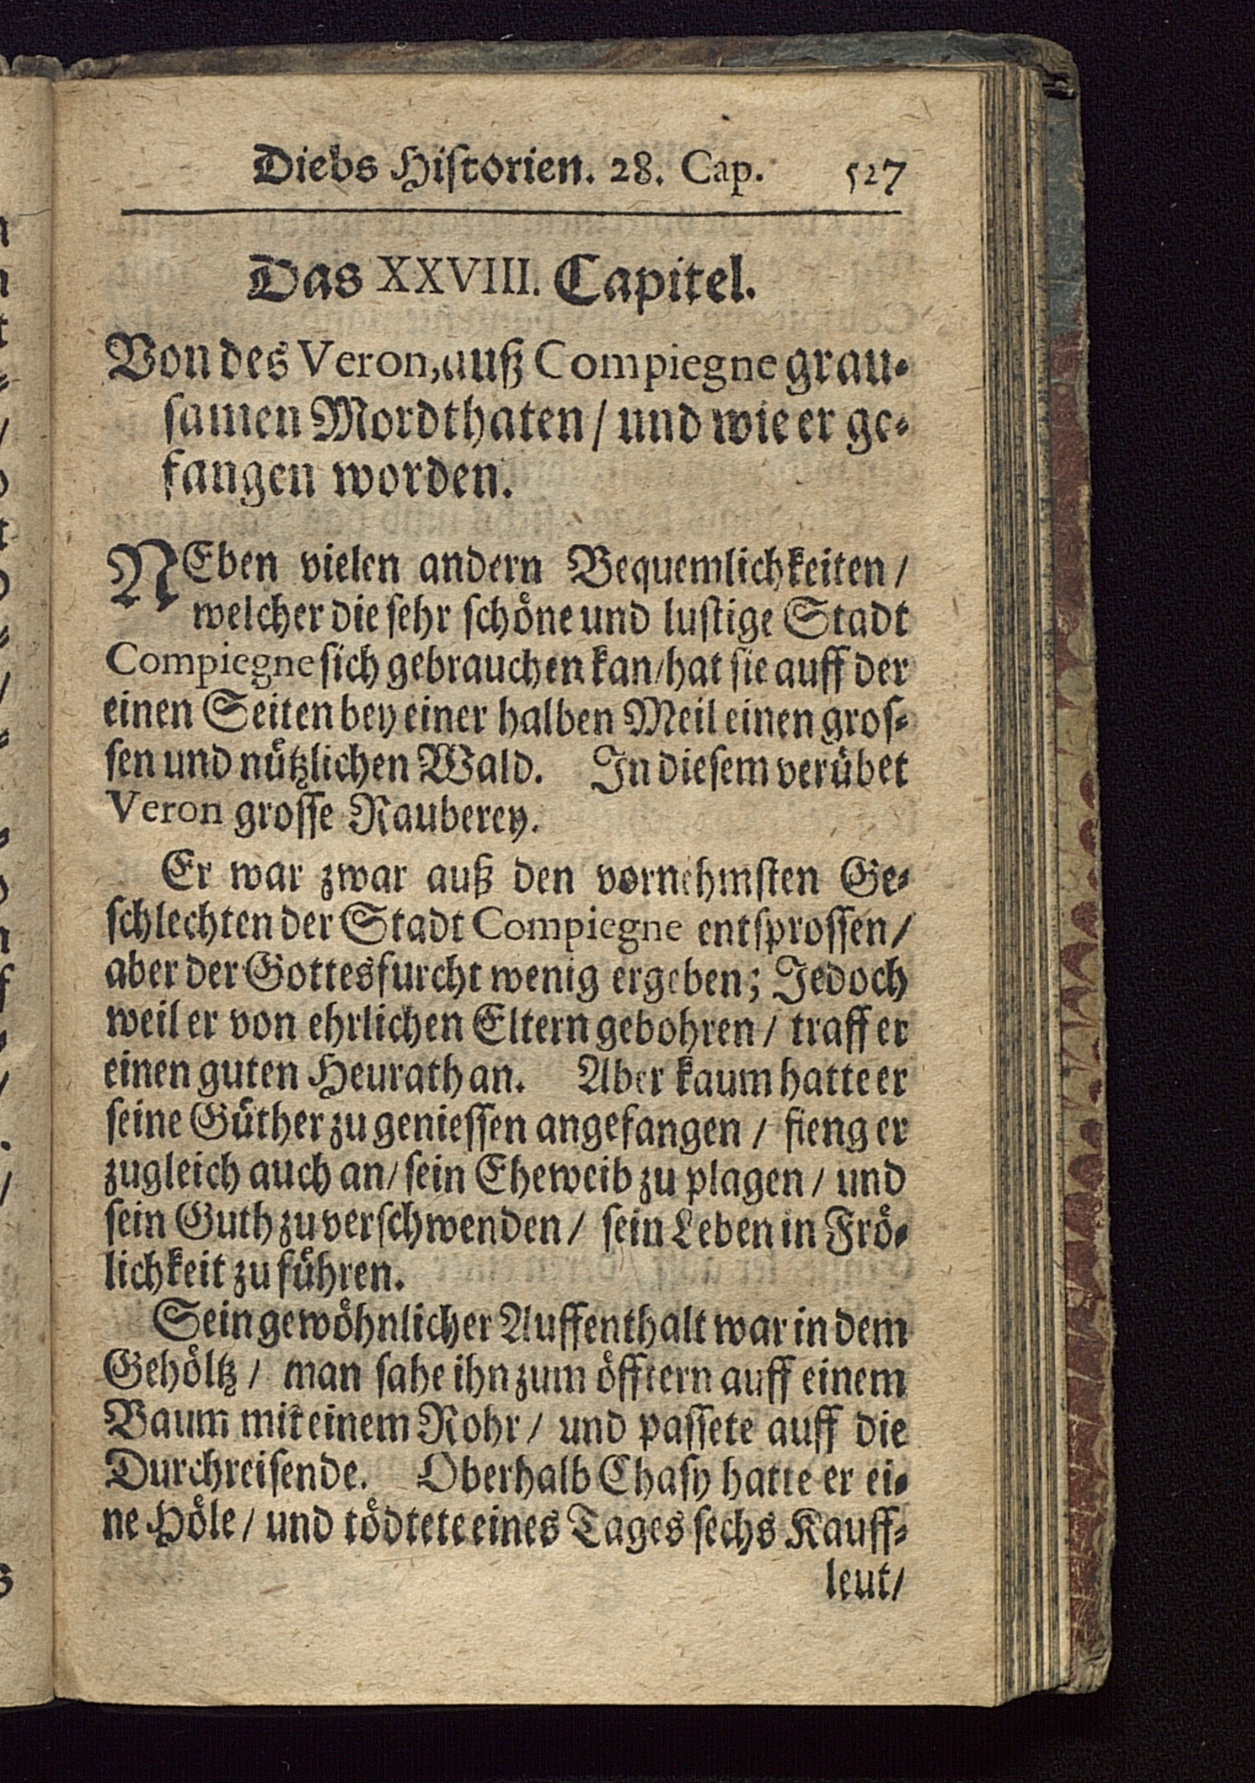 Diebs Historien. 28. Cap. 527
Das XXVIII. Capitel.
Von des Veron, auß Compiegne grau-
samen Mordthaten / und wie er ge-
fangen worden.
NEben vielen andern Bequemlichkeiten /
welcher die sehr schöne und lustige Stadt
Compiegne sich gebrauchen kan / hat sie auff der
einen Seiten bey einer halben Meil einen gros-
sen und nützlichen Wald. In diesem verübet
Veron grosse Rauberey.
Er war zwar auß den vornehmsten Ge-
schlechten der Stadt Compiegne entsprossen /
aber der Gottesfurcht wenig ergeben; Jedoch
weil er von ehrlichen Eltern gebohren / traff er
einen guten Heurath an. Aber kaum hatte er
seine Güther zu geniessen angefangen / fieng er
zugleich auch an / sein Eheweib zu plagen / und
sein Guth zu verschwenden / sein Leben in Frö-
lichkeit zu führen.
Sein gewöhnlicher Auffenthalt war in dem
Gehöltz / man sahe ihn zum öfftern auff einem
Baum mit einem Rohr / und passete auff die
Durchreisende. Oberhalb Chasy hatte er ei-
ne Höle / und tödtete eines Tages sechs Kauff-
leut /